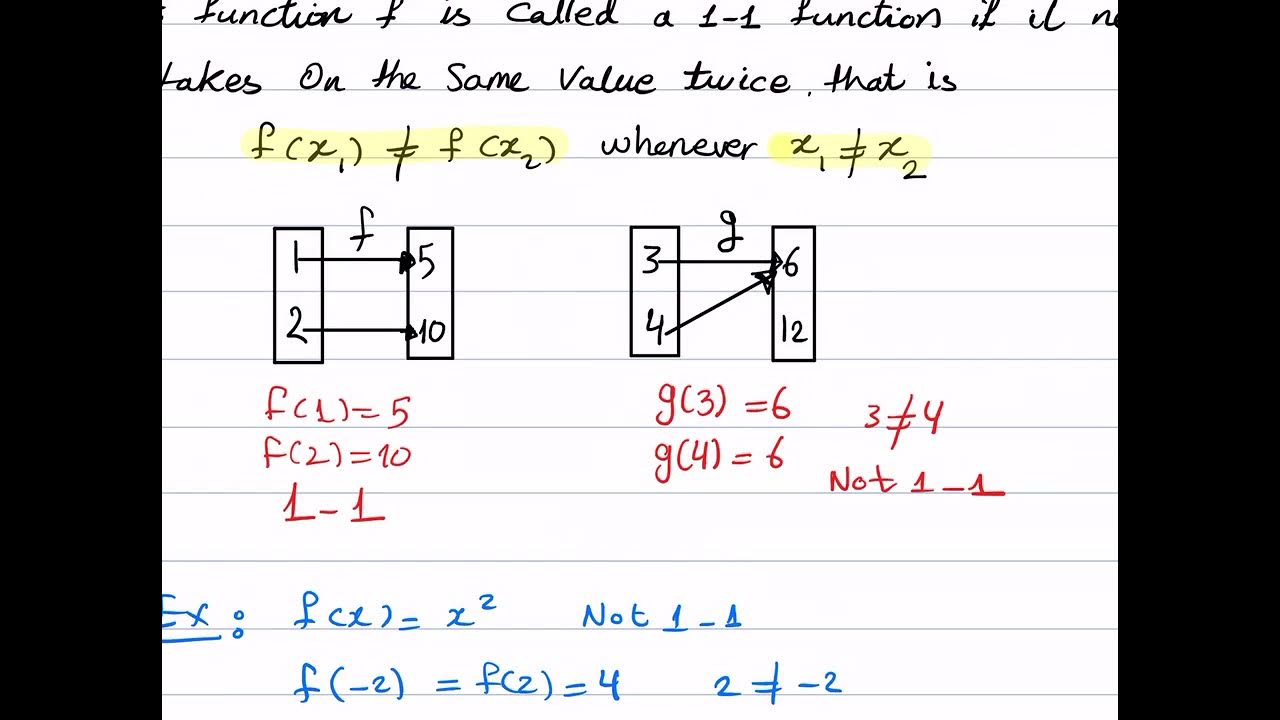 function f is called a 1-1 function if it
takes On the Same Value twice, that is
f(x₁) ≠ f(x₂) whenever x₁ ≠ x₂
f g
1 5 3 6
2 10 4 12
f(1) = 5 g(3) = 6 3 ≠ 4
f(2) = 10 g(4) = 6
1-1 Not 1-1
Ex: f(x) = x² Not 1-1
f(-2) = f(2) = 4 2 ≠ -2